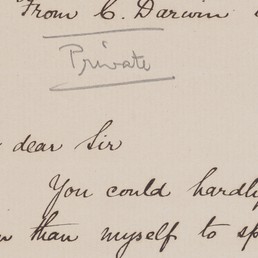 From C. Darwin
Private
dear Sir
You could hardly
than myself to sp